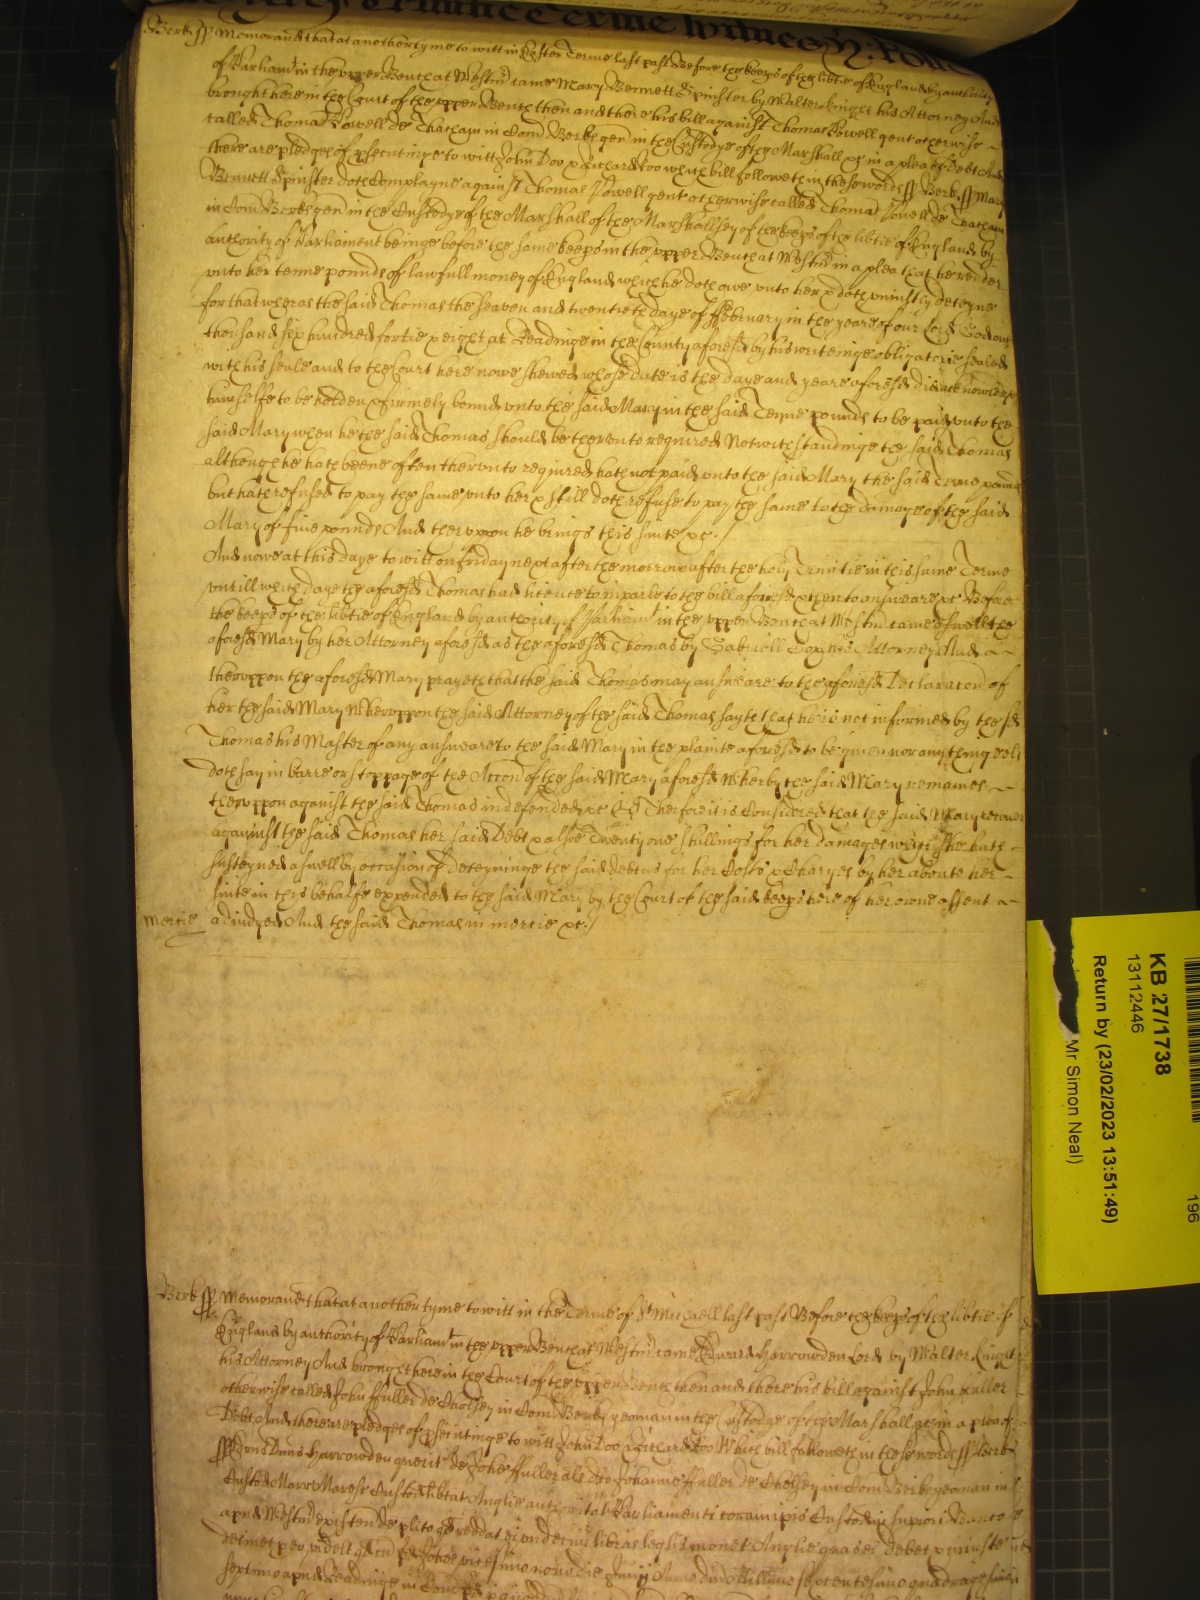 Trinitie Terme Witnes H: Rolle
Berk ss Memorand that at another tyme to witt in Easter Terme last past Before the keeps of the libtie of England by authority
of Parliamt in the upper Bench at Westm came Mary Bennett Spinster by Walter Knight his Attorney And
brought here in the Court of the upper Bench then and there his bill against Thomas Powell gent otherwise
called Thomas Powell de Thatcham in Com Berks gen in the Custodye of the Marshall &c in a plea of Debt And
there are pledges of psecutinge to witt John Doo & Richard Roo which bill followeth in these words ss Berk ss Mary
Bennett Spinster doth Complayne against Thomas Powell gent otherwise called Thomas Powell de Thatcham
in Com Berks gen in the Custodye of the Marshall of the Marshallsey of the keeps of the libtie of England by
authority of Parliament beinge before the same keeps in the upper Bench at Westm in a plea that he render
unto her tenne pounds of lawfull money of England which he doth owe unto her & doth uniustly deteyne
for that wheras the said Thomas the seaven and twentieth daye of ffebruary in the yeare of our Lord God one
thousand six hundred fortie & eight at Readinge in the County aforesd by his writeinge obligatorie sealed
with his seale and to the Court here nowe shewed whose date is the daye and yeare aforesd did acknowledge
himselfe to be holden & firmely bound unto the said Mary in the said Tenne pounds to be paid unto the
said Mary when he the said Thomas should be therunto required Notwithstandinge the said Thomas
although he hath beene often therunto required hath not paid unto the said Mary the said Tenne pounds
but hath refused to pay the same unto her & still doth refuse to pay the same to the damage of the said
Mary of five pounds And therupon he brings this suite &c.
And nowe at this daye to witt on Friday next after the morrow after the holy Trinitie in this same Terme
untill which daye the aforesd Thomas had licence to imparle to the bill aforesd & then to answeare &c Before
the keeps of the libtie of England by authority of Parliamt in the upper Bench at Westm came aswell the
aforesd Mary by her Attorney aforesd as the aforesd Thomas by Gabriell Cox his Attorney And
therupon the aforesd Mary prayeth that the said Thomas may answeare to the aforesd Declaracon of
her the said Mary Wherupon the said Attorney of the said Thomas sayth that he is not informed by the sd
Thomas his Master of any answeare to the said Mary in the plainte aforesd to be given nor any thing els
doth say in barre or stoppage of the Accon of the said Mary aforesd Wherby the said Mary remaines
therupon against the said Thomas indefended &c Therfore it is Considered that the said Mary recover
against the said Thomas her said Debt & alsoe Twenty one shillings for her damages which she hath
susteyned aswell by occasion of deteyninge the said debt as for her Costs & Charges by her aboute her
suite in this behalfe expended to the said Mary by the Court of the said keeps here of her owne assent
Mercie adiudged And the said Thomas in mercie &c.
Berk ss Memorand that at another tyme to witt in the Terme of St Michaell last past Before the keeps of the libtie of
England by authority of Parliamt in the upper Bench at Westm came Edward Harrowden Lord by Walter Knight
his Attorney And brought here in the Court of the upper Bench then and there his bill against John Fuller
otherwise called John ffuller de Cholsey in Com Berk yeoman in the Custodye of the Marshall &c in a plea of
Debt And there are pledges of psecutinge to witt John Doo Richard Roo Which bill followeth in these words ss Berk
ss Dns Harrowden querit de Johe ffuller als dco Johanne ffuller de Cholsey in Com Berk yeoman in
Custod Marr Maresc Custod libtat Anglie authoritat Parliamenti coram ipis Custodibz in superiori Banco
apud Westm existen de plito qd reddat ei
KB 27/1738
13112446
Return by (23/02/2023 13:51:49)
Mr Simon Neal)
196